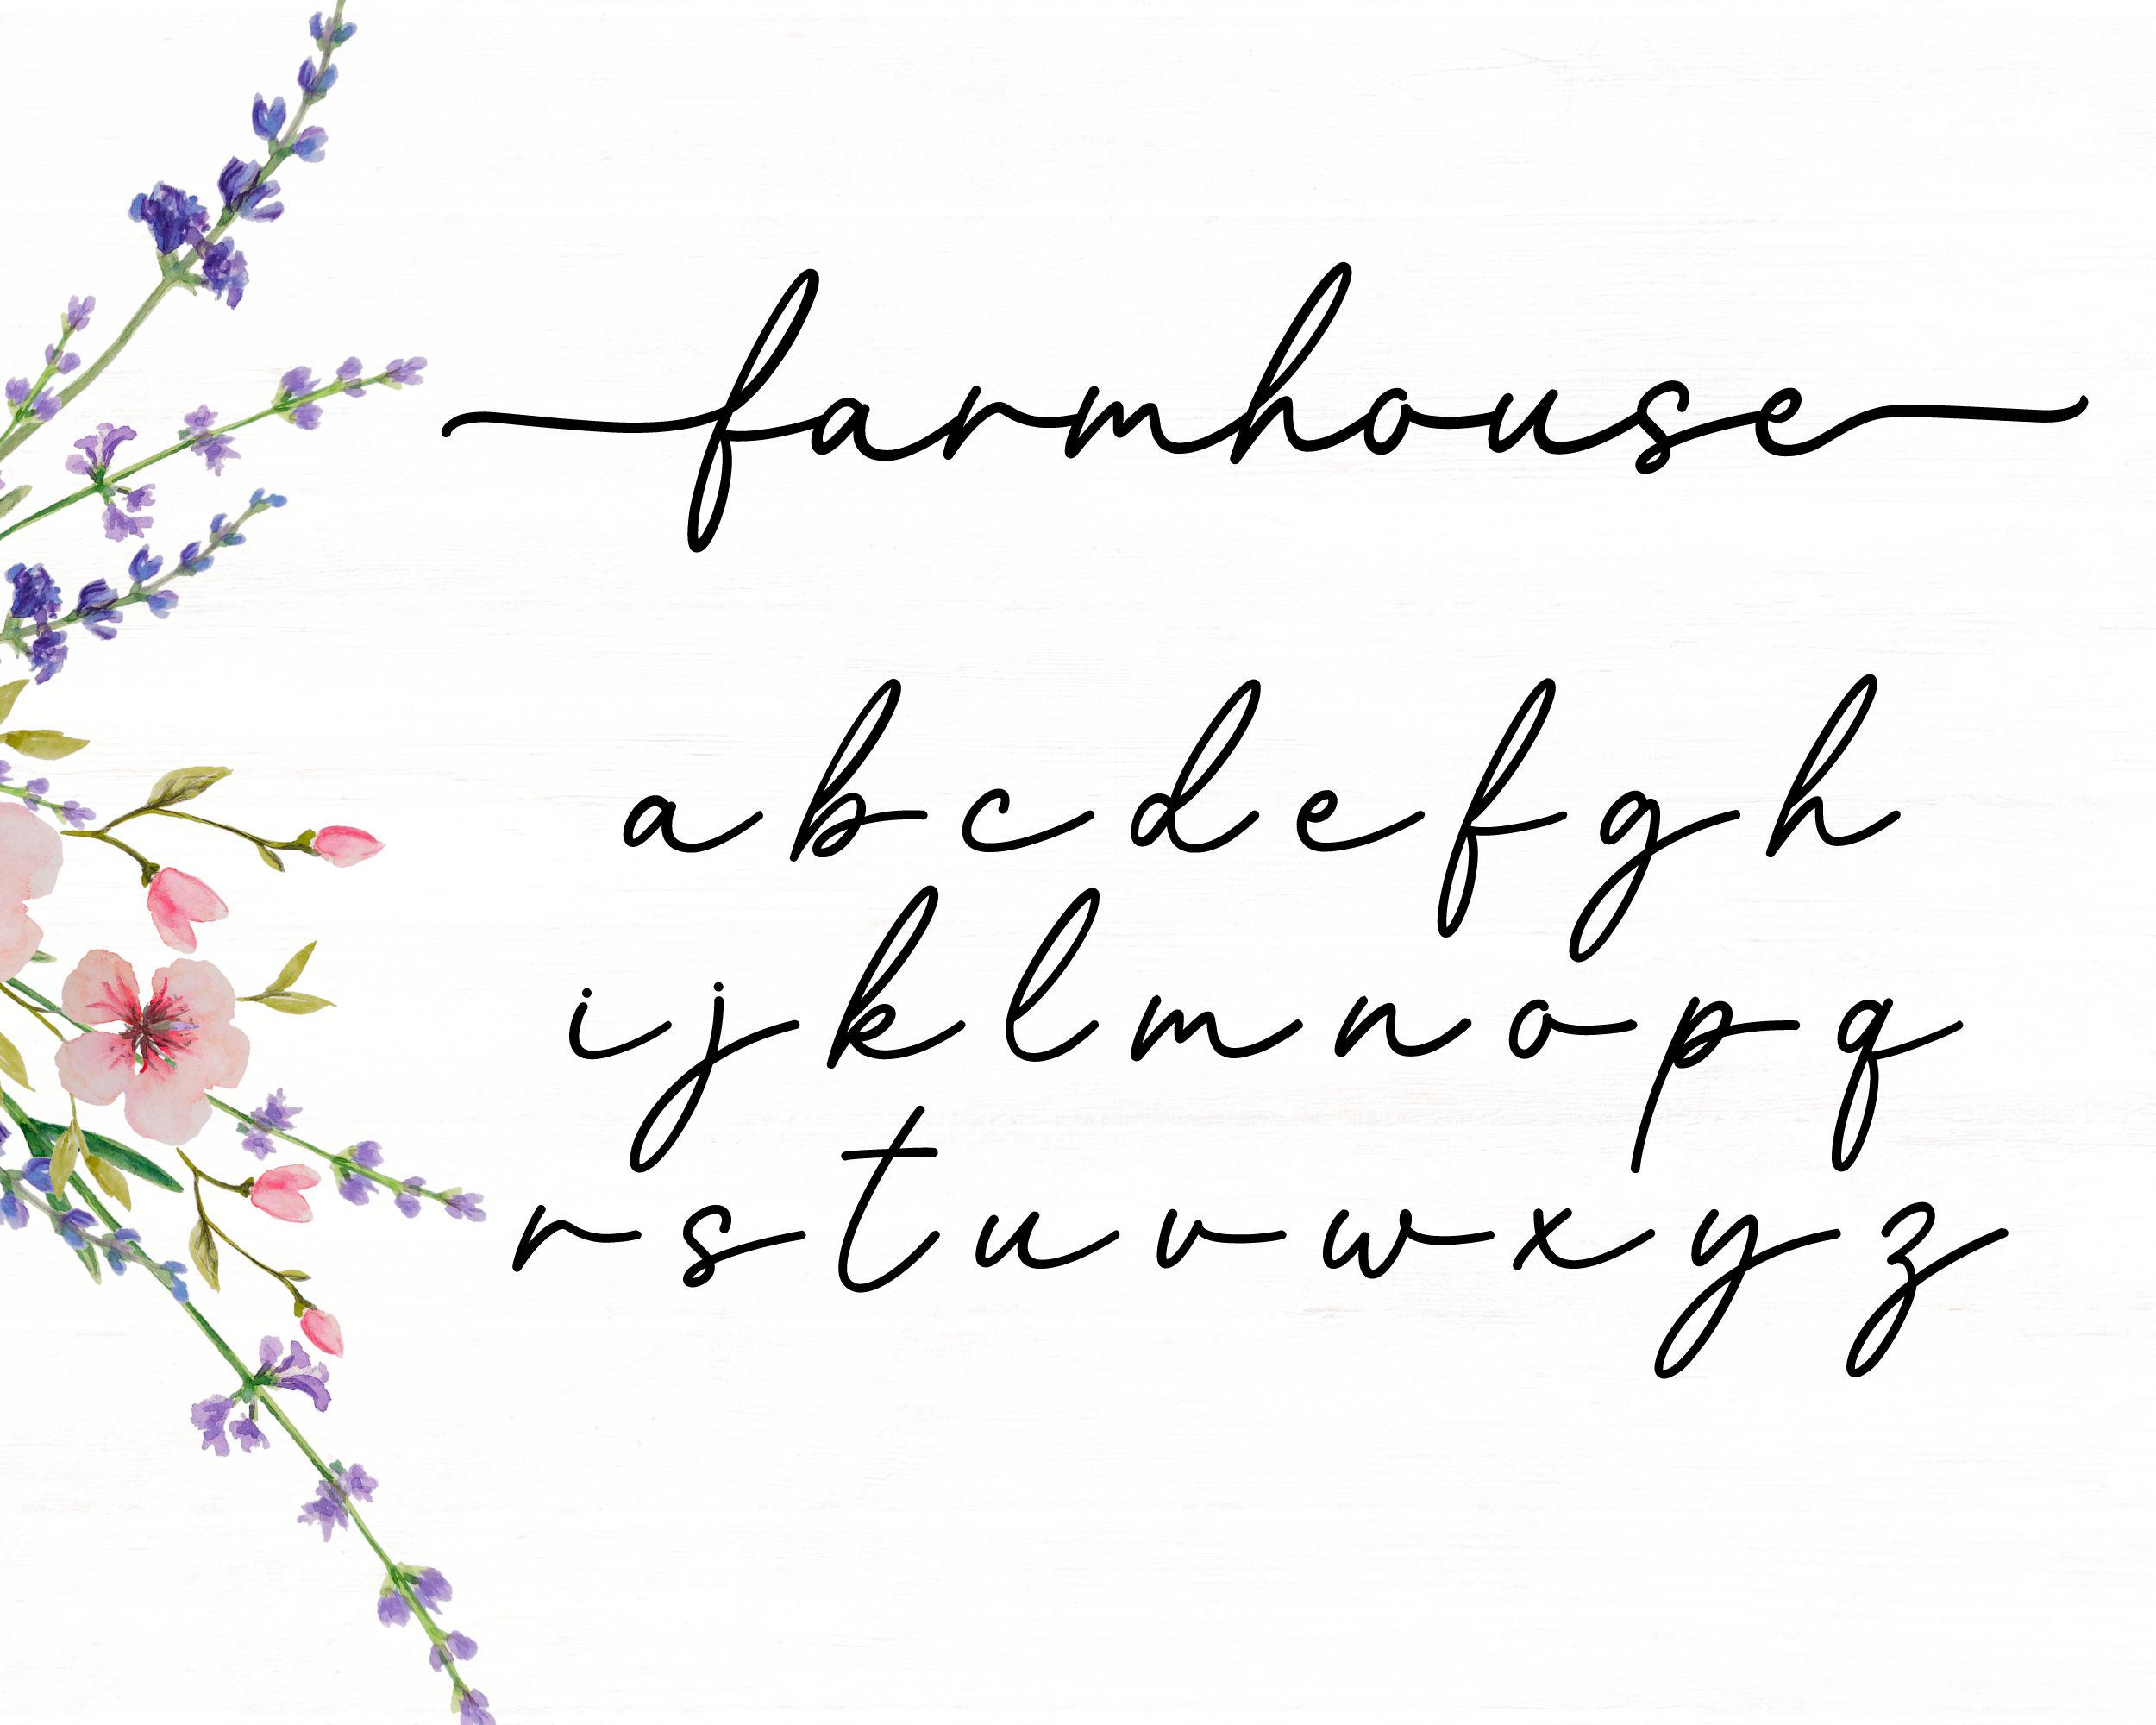 farmhouse
a b c d e f g h
i j k l m n o p q
r s t u v w x y z